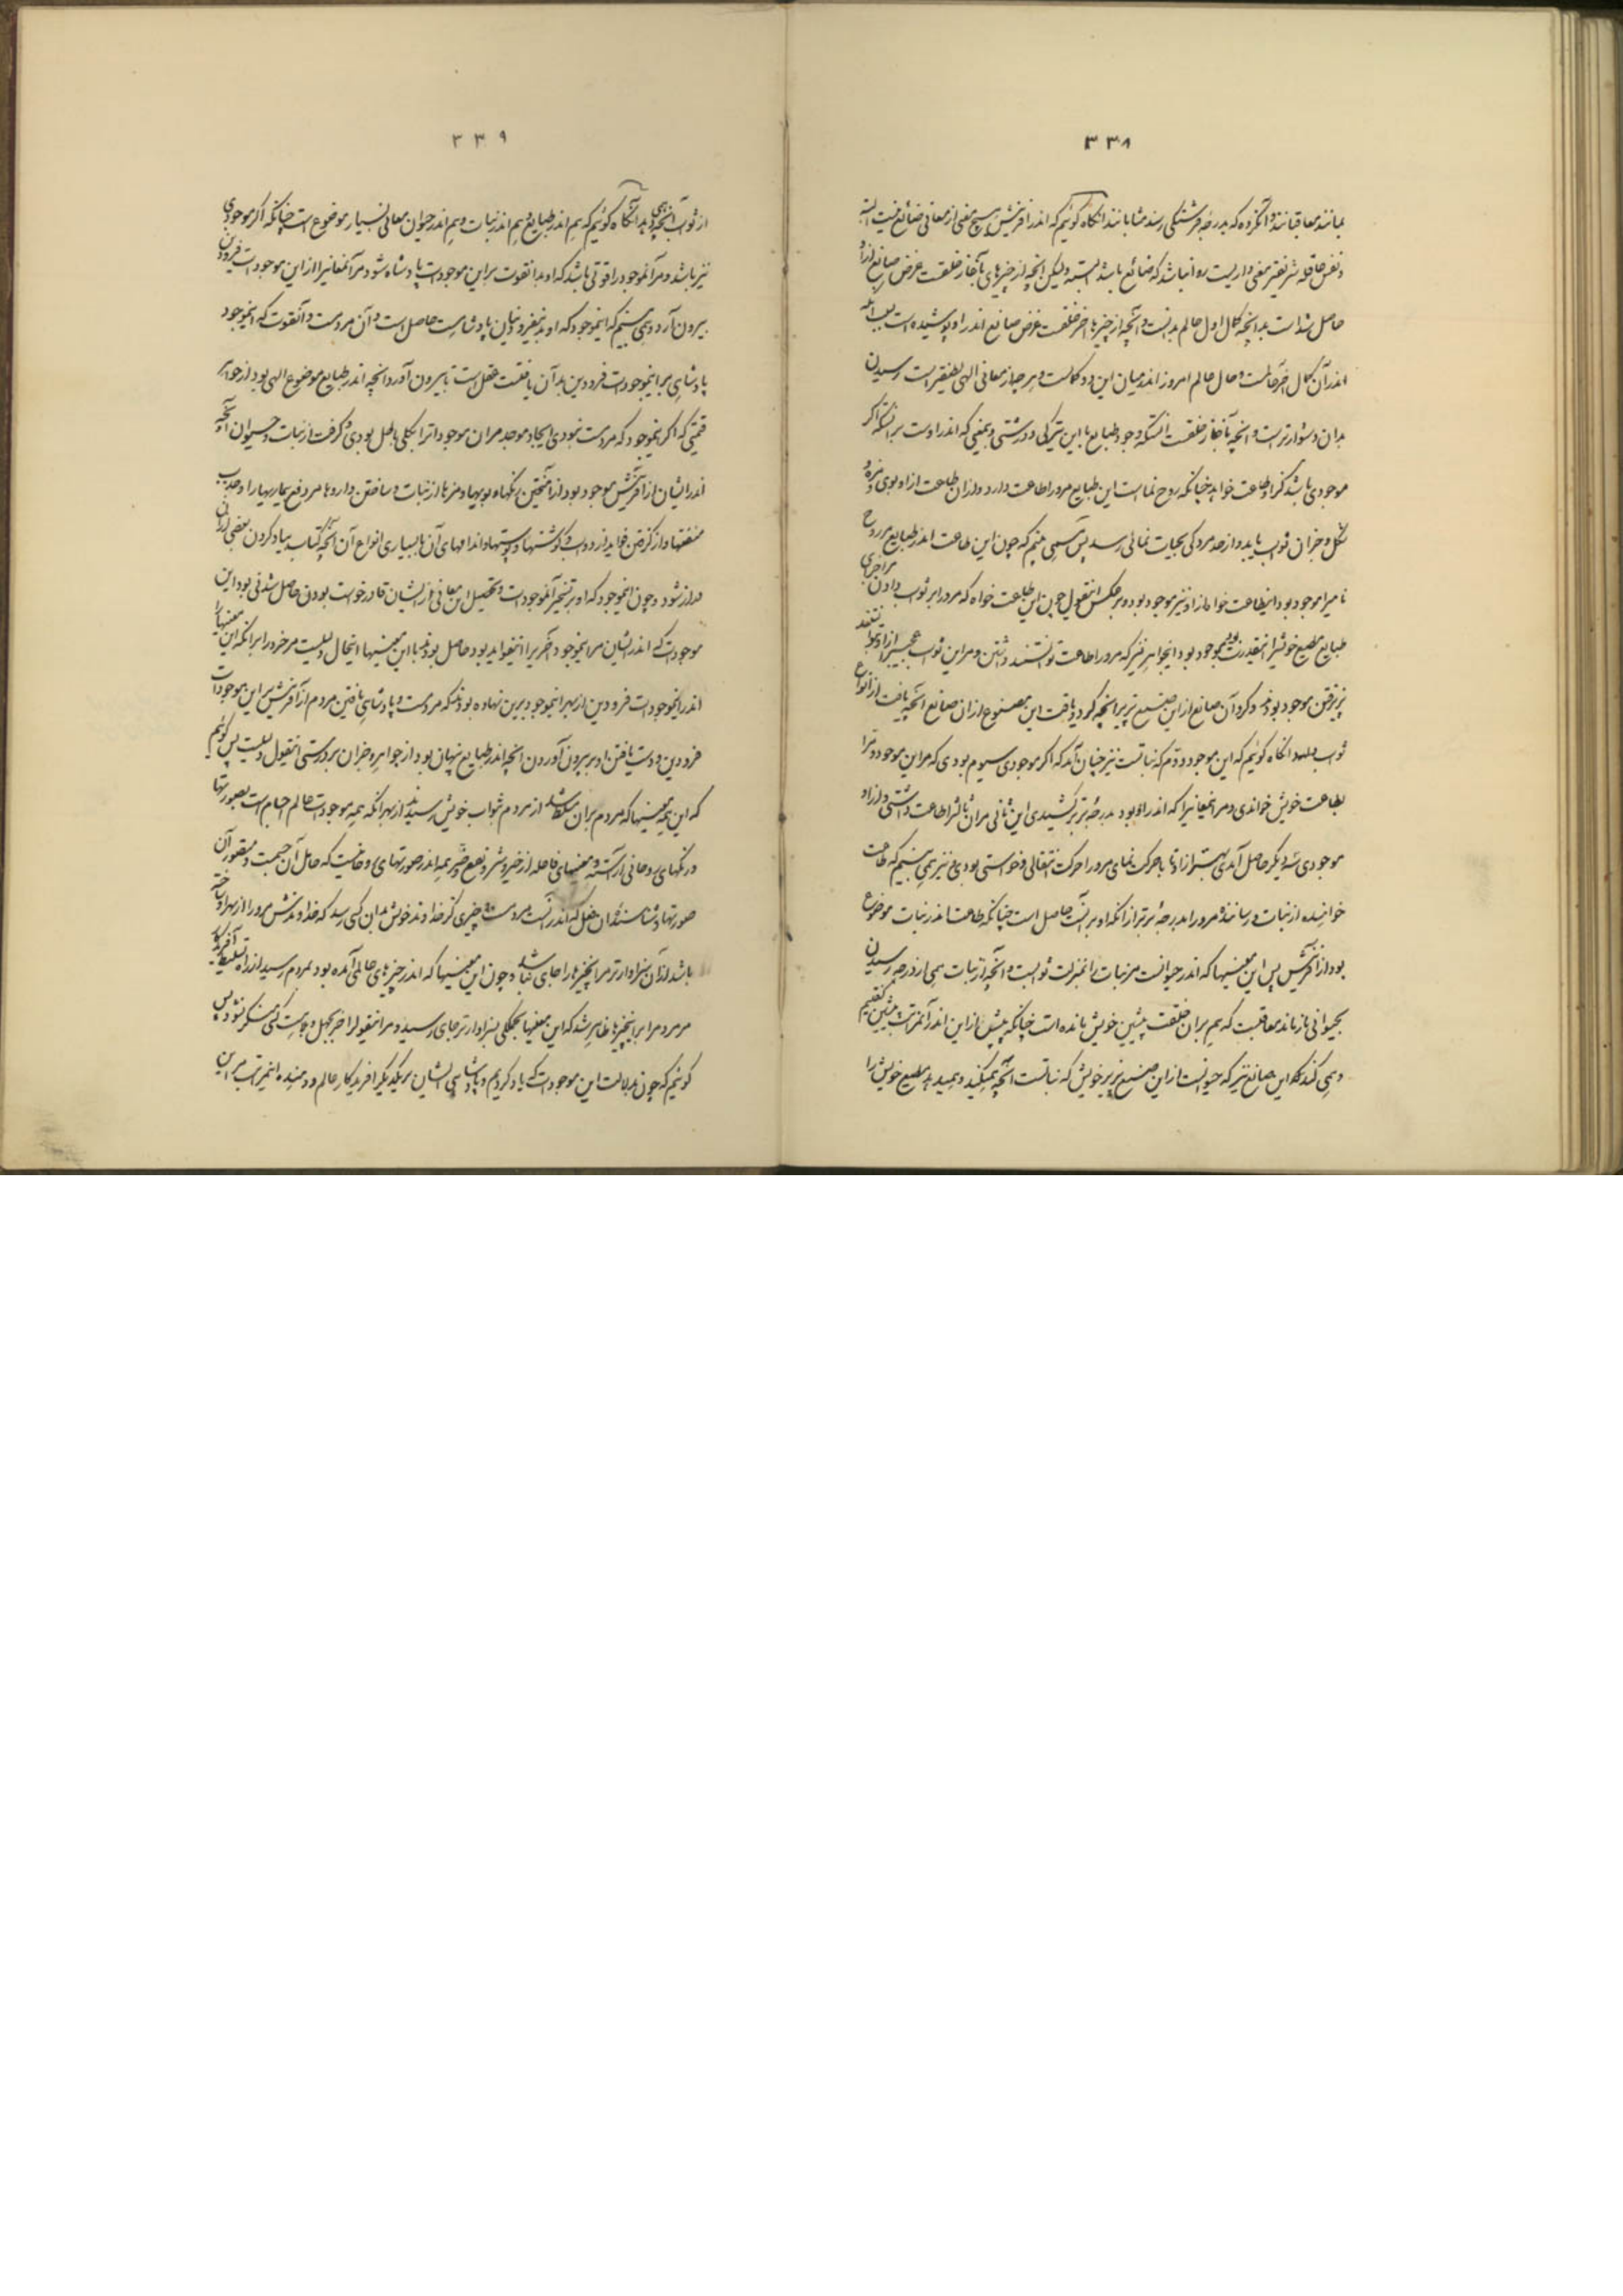 ۳۳۸
بمانند معاقبانند و آنگروه که بدرجه فرشتگی رسند مثابانند آنگاه گوئیم که اندر آفرینش هیچ معنی از معانی ضائع نیست البته
و نفس عاقله شریفتر معنی روا نباشد که ضائع باشد البته ولیکن آنچه از چیزهای بآغاز خلقت غرض صانع ازو
حاصل شد است بدانچه کمال اول عالم بدانست و آنچه از چیزها آخر خلقت غرض صانع اندر او پوشیده است
اندر آن کمال آخر عالمست و حال عالم امروز اندر میان این دو کمالست و هر چه از معانی الهی لطیفتر است رسیدن
بدان دشوارتر است و آنچه بآغاز خلقت آنستکه وجود طبایع با این تیرگی و درشتی و بمعنی که اندر اوست بر آنستکه اگر
موجودی باشد کز او طاعت خواهد چنانکه روح نما است این طبایع مرورا طاعت دارد و از آن طاعت از او بوی و مزه و
شکل و جز آن ثواب یابد و از حد مردگی بحیات نمائی رسد پس همی بینیم که چون این طاعت اندر طبایع مر روح
نامیرا موجود بود این طاعت خواه از او نیز موجود بود و بر عکس اینقول چون این طاعت خواه که مرورا بر ثواب دادن مر اجزای
طبایع مطیع خویشرا اینقدرت بود موجود بود این جواهر نیز که مرورا طاعت توانستند داشتن و مر این ثواب عجیب را از او توانستند
پذیرفتن موجود بودند و کرد آن صانع از این صنع پذیر آنچه کرد و یافت این مصنوع از آن صانع آنچه یافت از انواع
ثواب آنگاه گوئیم که این موجود دوم که نباتست نیز چنان آمد که اگر موجودی سیوم بودی که مر این موجود دوم را
بطاعت خویش خواندی و مر این معانیرا که اندر او بود بدرجه برتر کشیدی این ثانی مر آن ثالث را طاعت داشتی و از او
موجودی دیگر حاصل آمدی بهتر از او تا با حرکت نمای مرورا حرکت انتقالی و خواستی بودی و نیز همی بینیم که طاعت
خواننده از نبات و رساننده مرورا بدرجه برتر از آنکه او بر آنست حاصل است چنانکه طاعت اندر نبات موضوع
بود از آفرینش پس این معنیها که اندر حیوانست مر نبات را بمنزلت ثوابست و آنچه از نبات همی از درجه رسیدن
بحیوانی باز ماند معاقبست که هم بران خلقت پیشین خویش مانده است چنانکه پیش از این اندر آن مراتب پیشین گفتیم
و همی کند این صانع نیز که حیوانست از این صنع پذیر خویش که نباتست آنچه همیکند و همیدهد مطیع خویش را
۳۳۹
از ثواب آنچه همی دهد آنگاه گوئیم که هم اندر طبایع هم اندر نبات و هم اندر حیوان معانی بسیار موضوع است چنانکه اگر موجودی
نیز باشد و مر آن موجود را قوتی باشد که او بدانقوت بر این موجودات پادشاه شود مر آن معانیرا از این موجودات فرودین
بیرون آرد و همی بینیم که این موجود که او بدینچیز و بدان پادشاست حاصل است و آن مردمست و آنقوت که این موجود
پادشاهی بر این موجودات فرودین بدان یافتست عقل است تا بیرون آورد آنچه اندر طبایع موضوع الهی بود از جواهر
قیمتی که اگر این موجود که مردمست نبودی ایجاد موجد مر آن موجوداترا بکلی باطل بودی و گرفت از نبات و حیوان آنچه
اندر ایشان از آفرینش موجود بود از آمیختن رنگها و بویها و مزها از نبات و ساختن داروها مر دفع بیماریها را و جذب
منفعتها و از گرفتن فواید از دواب و گوشتها و پوستها و اندامهای آن با بسیاری انواع آن آنچه کتاب بیاد کردن بعضی از آن
دراز شود و چون این موجود که او بر تسخیر آن موجودات و تحصیل این معانی از ایشان قادر خواست بودن حاصل شدنی بود این
موجودات که اندر ایشان مر این موجود آخرین را این فواید بود حاصل بودند با این معنیها اینحال دلیلست مر خرد را بر آنکه این معنیها را
اندر این موجودات فرودین از بهر این موجود برین نهاده بودند که مردمست و پادشاهی یافتن مردم از آفرینش بر این موجودات
فرودین و دست یافتن او بر بیرون آوردن آنچه اندر طبایع پنهان بود از جواهر و جز آن بر درستی اینقول دلیلست پس گوئیم
که این همه معنیها که مردم بران مسلط شد از مردم بثواب خویش رسیدند از بهر آنکه همه موجودات عالم اجسام است بصورتها
و رنگهای روحانی آراسته و معنیهای فاصله از خیر و شر و نفع و ضر همه اندر صورتهای روحانیست که حامل آن جسمست و مصور آن
صورتها و شناسنده آن عقل که اندر مردمست و چیزی کز خداوند خویش بدان کسی رسد که خداوندش مرورا از بهر او ساخته
باشد از آن سزاوارتر مر آن چیز را جای نباشد و چون این معنیها که اندر چیزهای عالمی آمده بود بمردم رسید از راه تسلیط آفریدگار
مر مردم را بر این چیزها ظاهر شد که این معنیها بجملگی بسزاوارتر جای رسید و مر اینقول را جز بجهل و بهت کسی منکر نشود پس
گوئیم که چون بدلالت این موجودات که یاد کردیم و پادشاهی ایشان بر یکدیگر آفریدگار عالم و دهنده این مراتب مر این